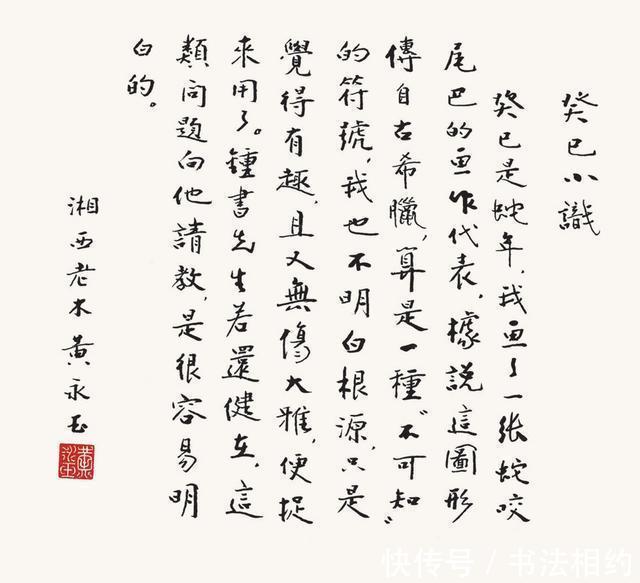 癸巳小識
癸巳是蛇年，我画了一张蛇咬
尾巴的画作代表，據說這圖形
傳自古希臘，算是一種“不可知”
的符號，我也不明白根源，只是
覺得有趣，且又無傷大雅，便捉
來用了。鍾書先生若還健在，這
類问題向他請教，是很容易明
白的。
湘西老木黃永玉
快传号/书法相约